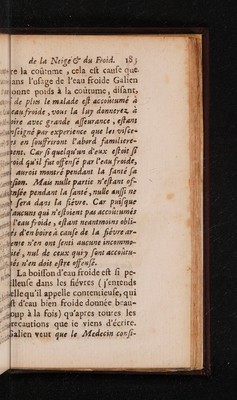 de la Neige & du Froid. 183
re la coûtume, cela est cause que
ans l'usage de l'eau froide Galien
onne poids à la coûtume, disant,
de plus le malade est accoûtumé à
eau froide, vous la luy donnerez à
oire avec grande asseurance, estant
nseigné par experience que les visce-
en souffriront l'abord familiere-
ent. Car si quelqu'un d'eux estoit si
oid qu'il fut offensé par l'eau froide,
auroit montré pendant la santé sa
sion. Mais nulle partie n'estant of-
ensée pendant la santé, nulle aussi ne
sera dans la fiévre. Car puisque
aucuns qui n'estoient pas accoûtumés
l'eau froide, estant neantmoins obli-
és d'en boire à cause de la fiévre ar-
eme n'en ont senti aucune incommo-
ité, nul de ceux qui y sont accoûtu-
és n'en doit estre offensé.
La boisson d'eau froide est si pe-
illeuse dans les fiévres (j'entends
elle qu'il appelle contencieuse, qui
st d'eau bien froide donnée beau-
oup à la fois) qu'aprés toutes les
recautions que ie viens d'écrire.
Galien veut que le Medecin consi-